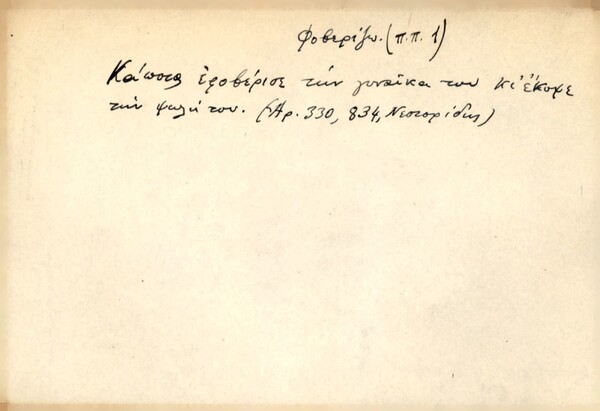 Φοβερίζω. (π.π. 1)
Κάποτες ἐφοβέρισε τὴν γυναῖκα του κι' ἔκοψε
τὴν ψωλή του. (Ἀρ. 330, 834, Νεστορίδης)